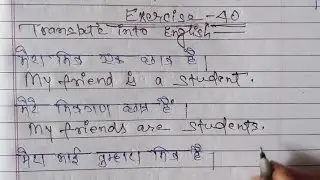 Exercise-40
Translate into English
मेरा मित्र एक छात्र है।
My friend is a student.
मेरे मित्रगण छात्र हैं।
My friends are students.
मेरा भाई तुम्हारा मित्र है।